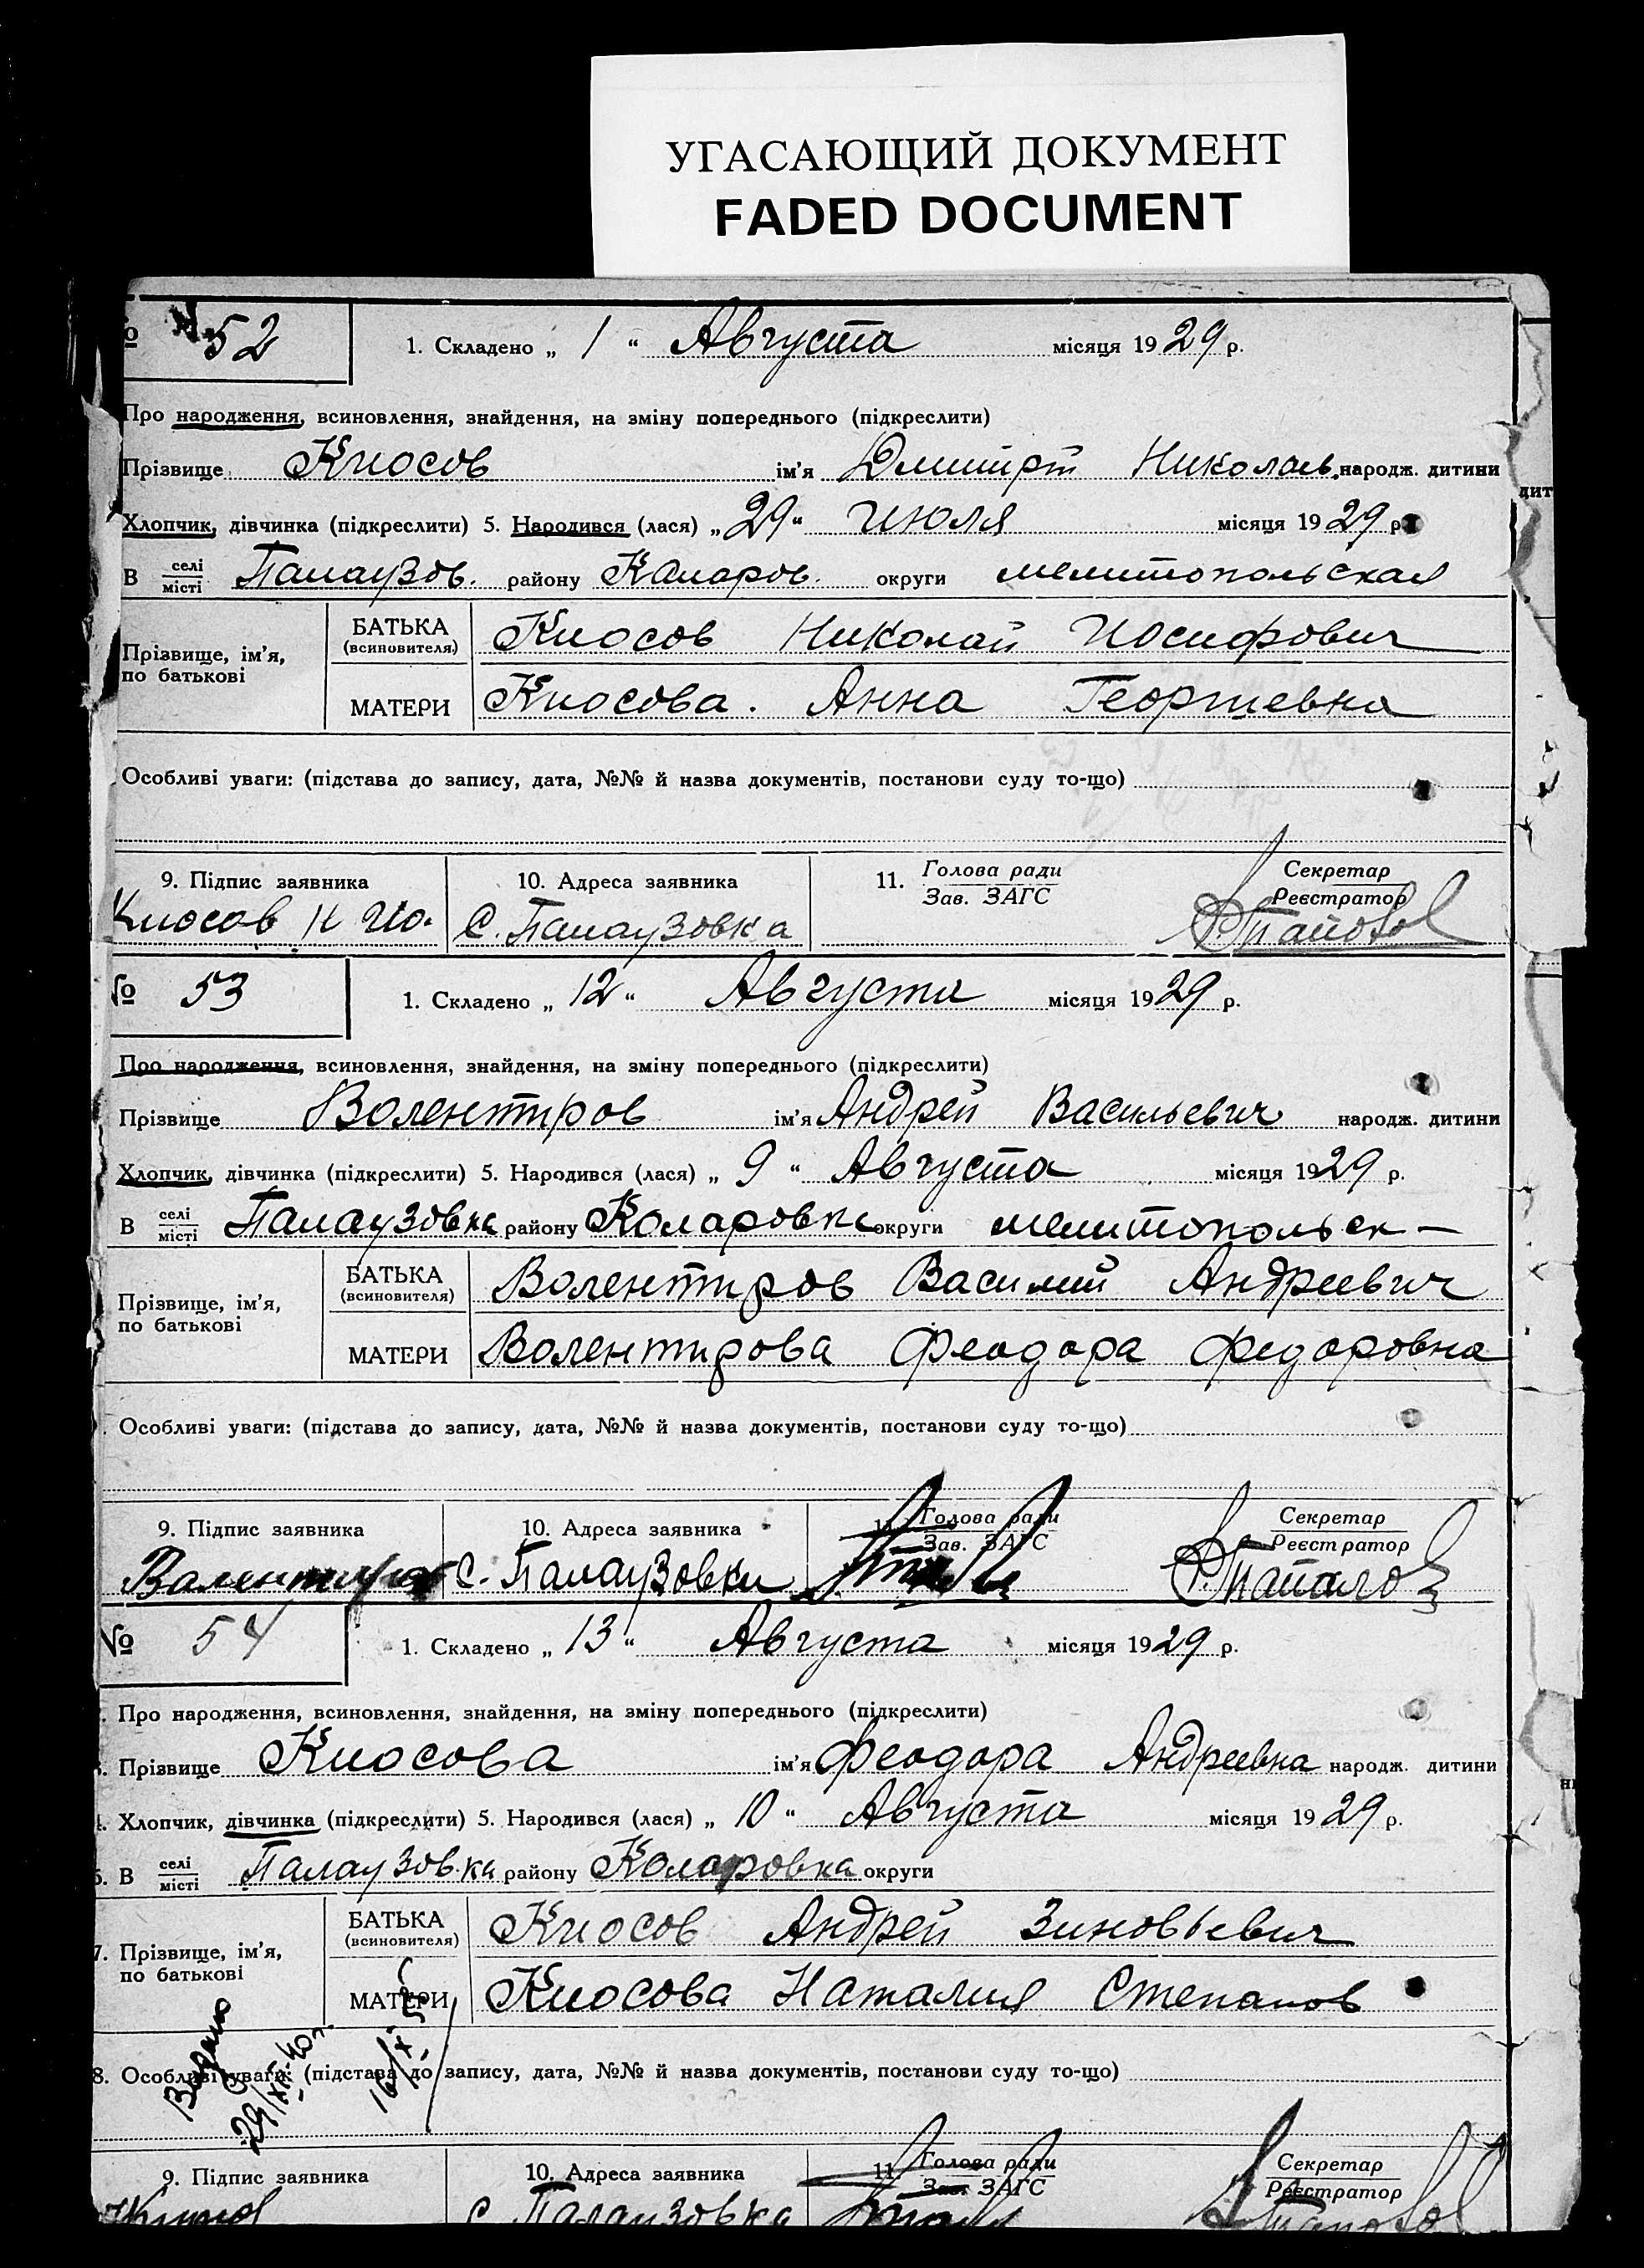 УГАСАЮЩИЙ ДОКУМЕНТ
FADED DOCUMENT
№ 52 1. Складено „ 1 “ Августа місяця 1929 р.
Про народження, всиновлення, знайдення, на зміну попереднього (підкреслити)
Прізвище Киосов ім'я Дмитрт Николаев. народж. дитини
Хлопчик, дівчинка (підкреслити) 5. Народився (лася) „ 29 “ Июля місяця 1929 р.
В селі місті Палаузов. району Коларов. округи мелитопольская
Прізвище, ім'я, по батькові БАТЬКА (всиновителя) Киосов Николай Иосифович
МАТЕРИ Киосова. Анна Георгиевна
Особливі уваги: (підстава до запису, дата, №№ й назва документів, постанови суду то-що)
9. Підпис заявника 10. Адреса заявника 11. Голова ради Зав. ЗАГС Секретар Реєстратор
Киосов Н Ио. С. Палаузовка
№ 53 1. Складено „ 12 “ Августа місяця 1929 р.
Про народження, всиновлення, знайдення, на зміну попереднього (підкреслити)
Прізвище Волентиров ім'я Андрей Васильевич народж. дитини
Хлопчик, дівчинка (підкреслити) 5. Народився (лася) „ 9 “ Августа місяця 1929 р.
В селі місті Палаузовка району Коларовка округи мелитопольск —
Прізвище, ім'я, по батькові БАТЬКА (всиновителя) Волентиров Василий Андреевич
МАТЕРИ Волентирова Феодора Федоровна
Особливі уваги: (підстава до запису, дата, №№ й назва документів, постанови суду то-що)
9. Підпис заявника 10. Адреса заявника 11. Голова ради Зав. ЗАГС Секретар Реєстратор
С. Палаузовки
№ 54 1. Складено „ 13 “ Августа місяця 1929 р.
Про народження, всиновлення, знайдення, на зміну попереднього (підкреслити)
3. Прізвище Киосова ім'я Феодора Андреевна народж. дитини
4. Хлопчик, дівчинка (підкреслити) 5. Народився (лася) „ 10 “ Августа місяця 1929 р.
6. В селі місті Палаузовка району Коларовка округи
7. Прізвище, ім'я, по батькові БАТЬКА (всиновителя) Киосов Андрей Зиновьевич
МАТЕРИ Киосова Наталия Степанов
8. Особливі уваги: (підстава до запису, дата, №№ й назва документів, постанови суду то-що)
9. Підпис заявника 10. Адреса заявника 11. Голова ради Зав. ЗАГС Секретар Реєстратор
с. Палаузовка